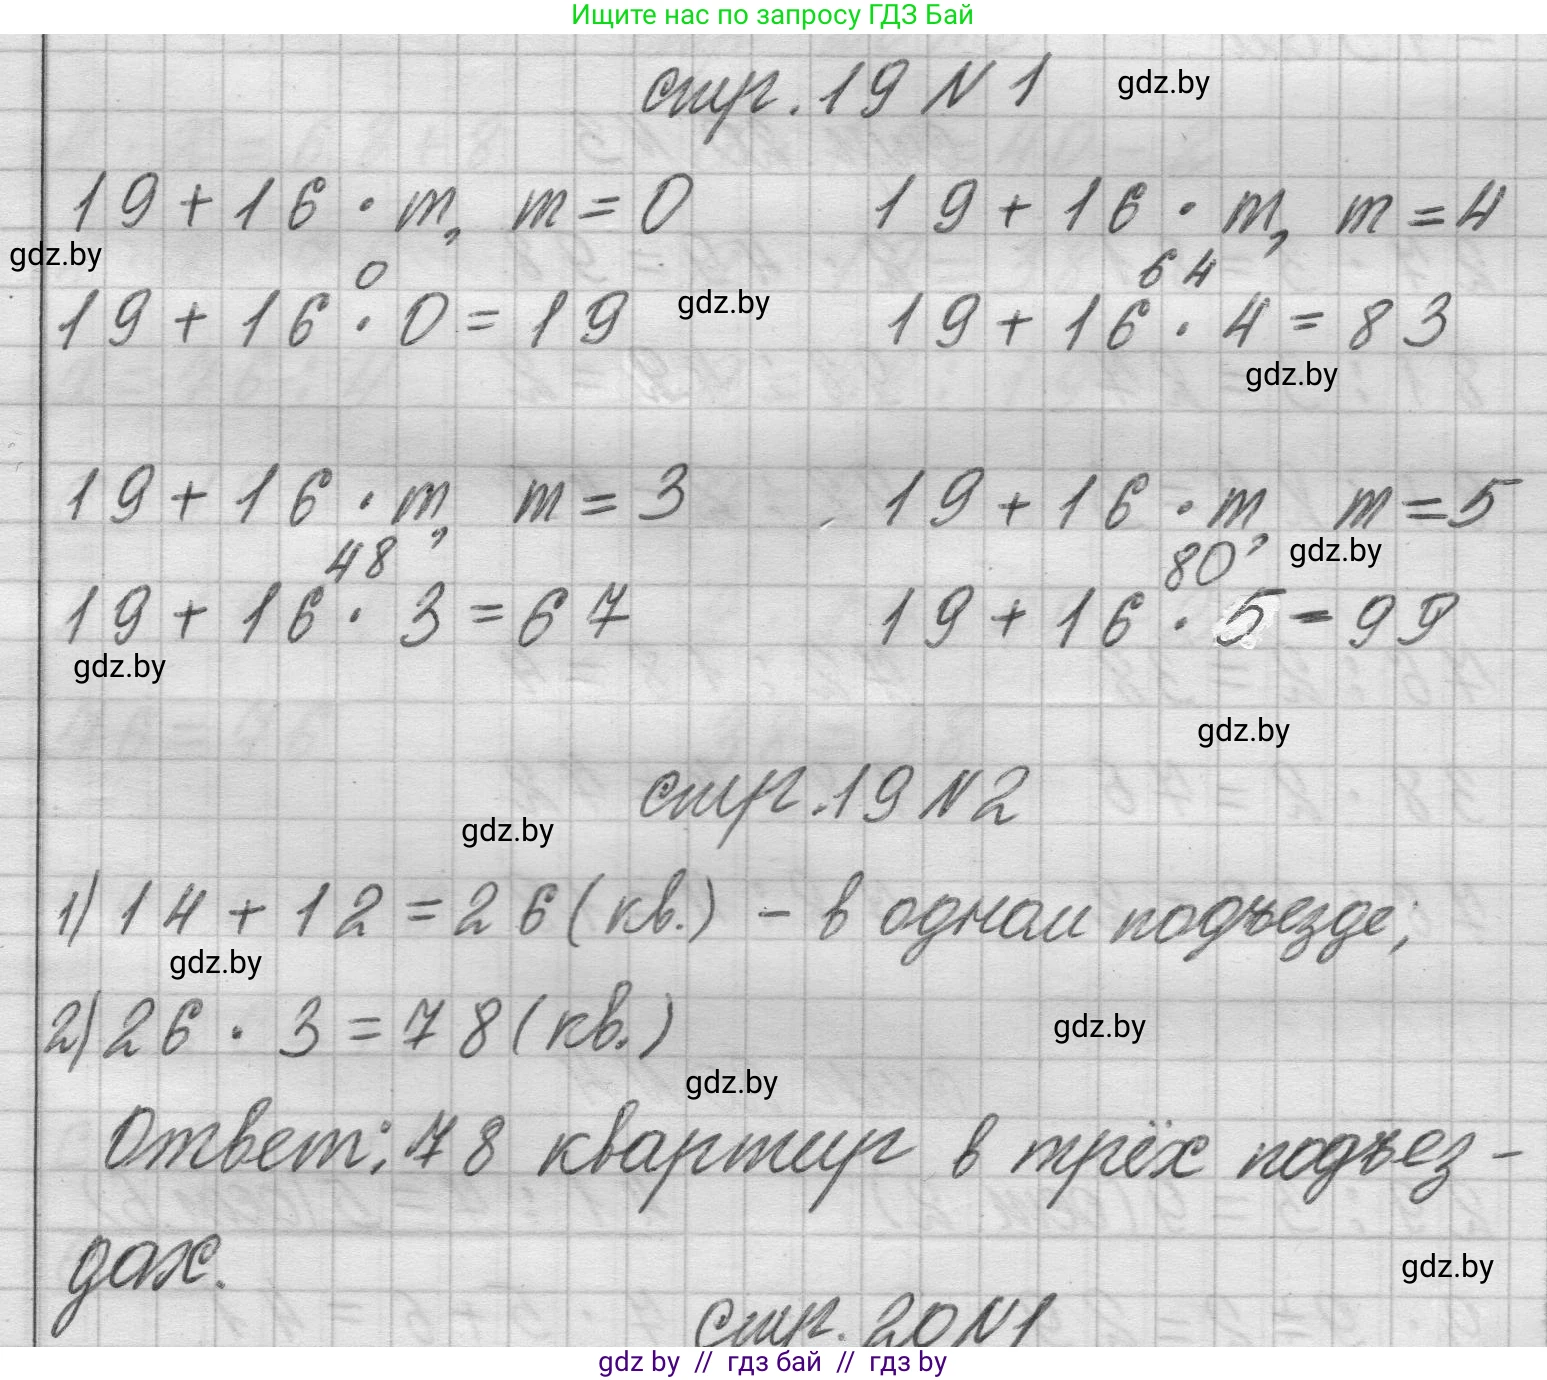 Ищите нас по запросу ГДЗ Бай
стр. 19 N 1 gdz.by
19 + 16 · m, m = 0 19 + 16 · m, m = 4
gdz.by
0 64
19 + 16 · 0 = 19 gdz.by 19 + 16 · 4 = 83
gdz.by
19 + 16 · m, m = 3 19 + 16 · m, m = 5
48 80 gdz.by
19 + 16 · 3 = 67 19 + 16 · 5 = 99
gdz.by
gdz.by
стр. 19 N 2
gdz.by
1) 14 + 12 = 26 (кв.) - в одном подъезде;
gdz.by
2) 26 · 3 = 78 (кв.) gdz.by
gdz.by
Ответ: 78 квартир в трёх подъез-
дах.
gdz.by
стр. 20 N 1
gdz by // гдз бай // гдз by